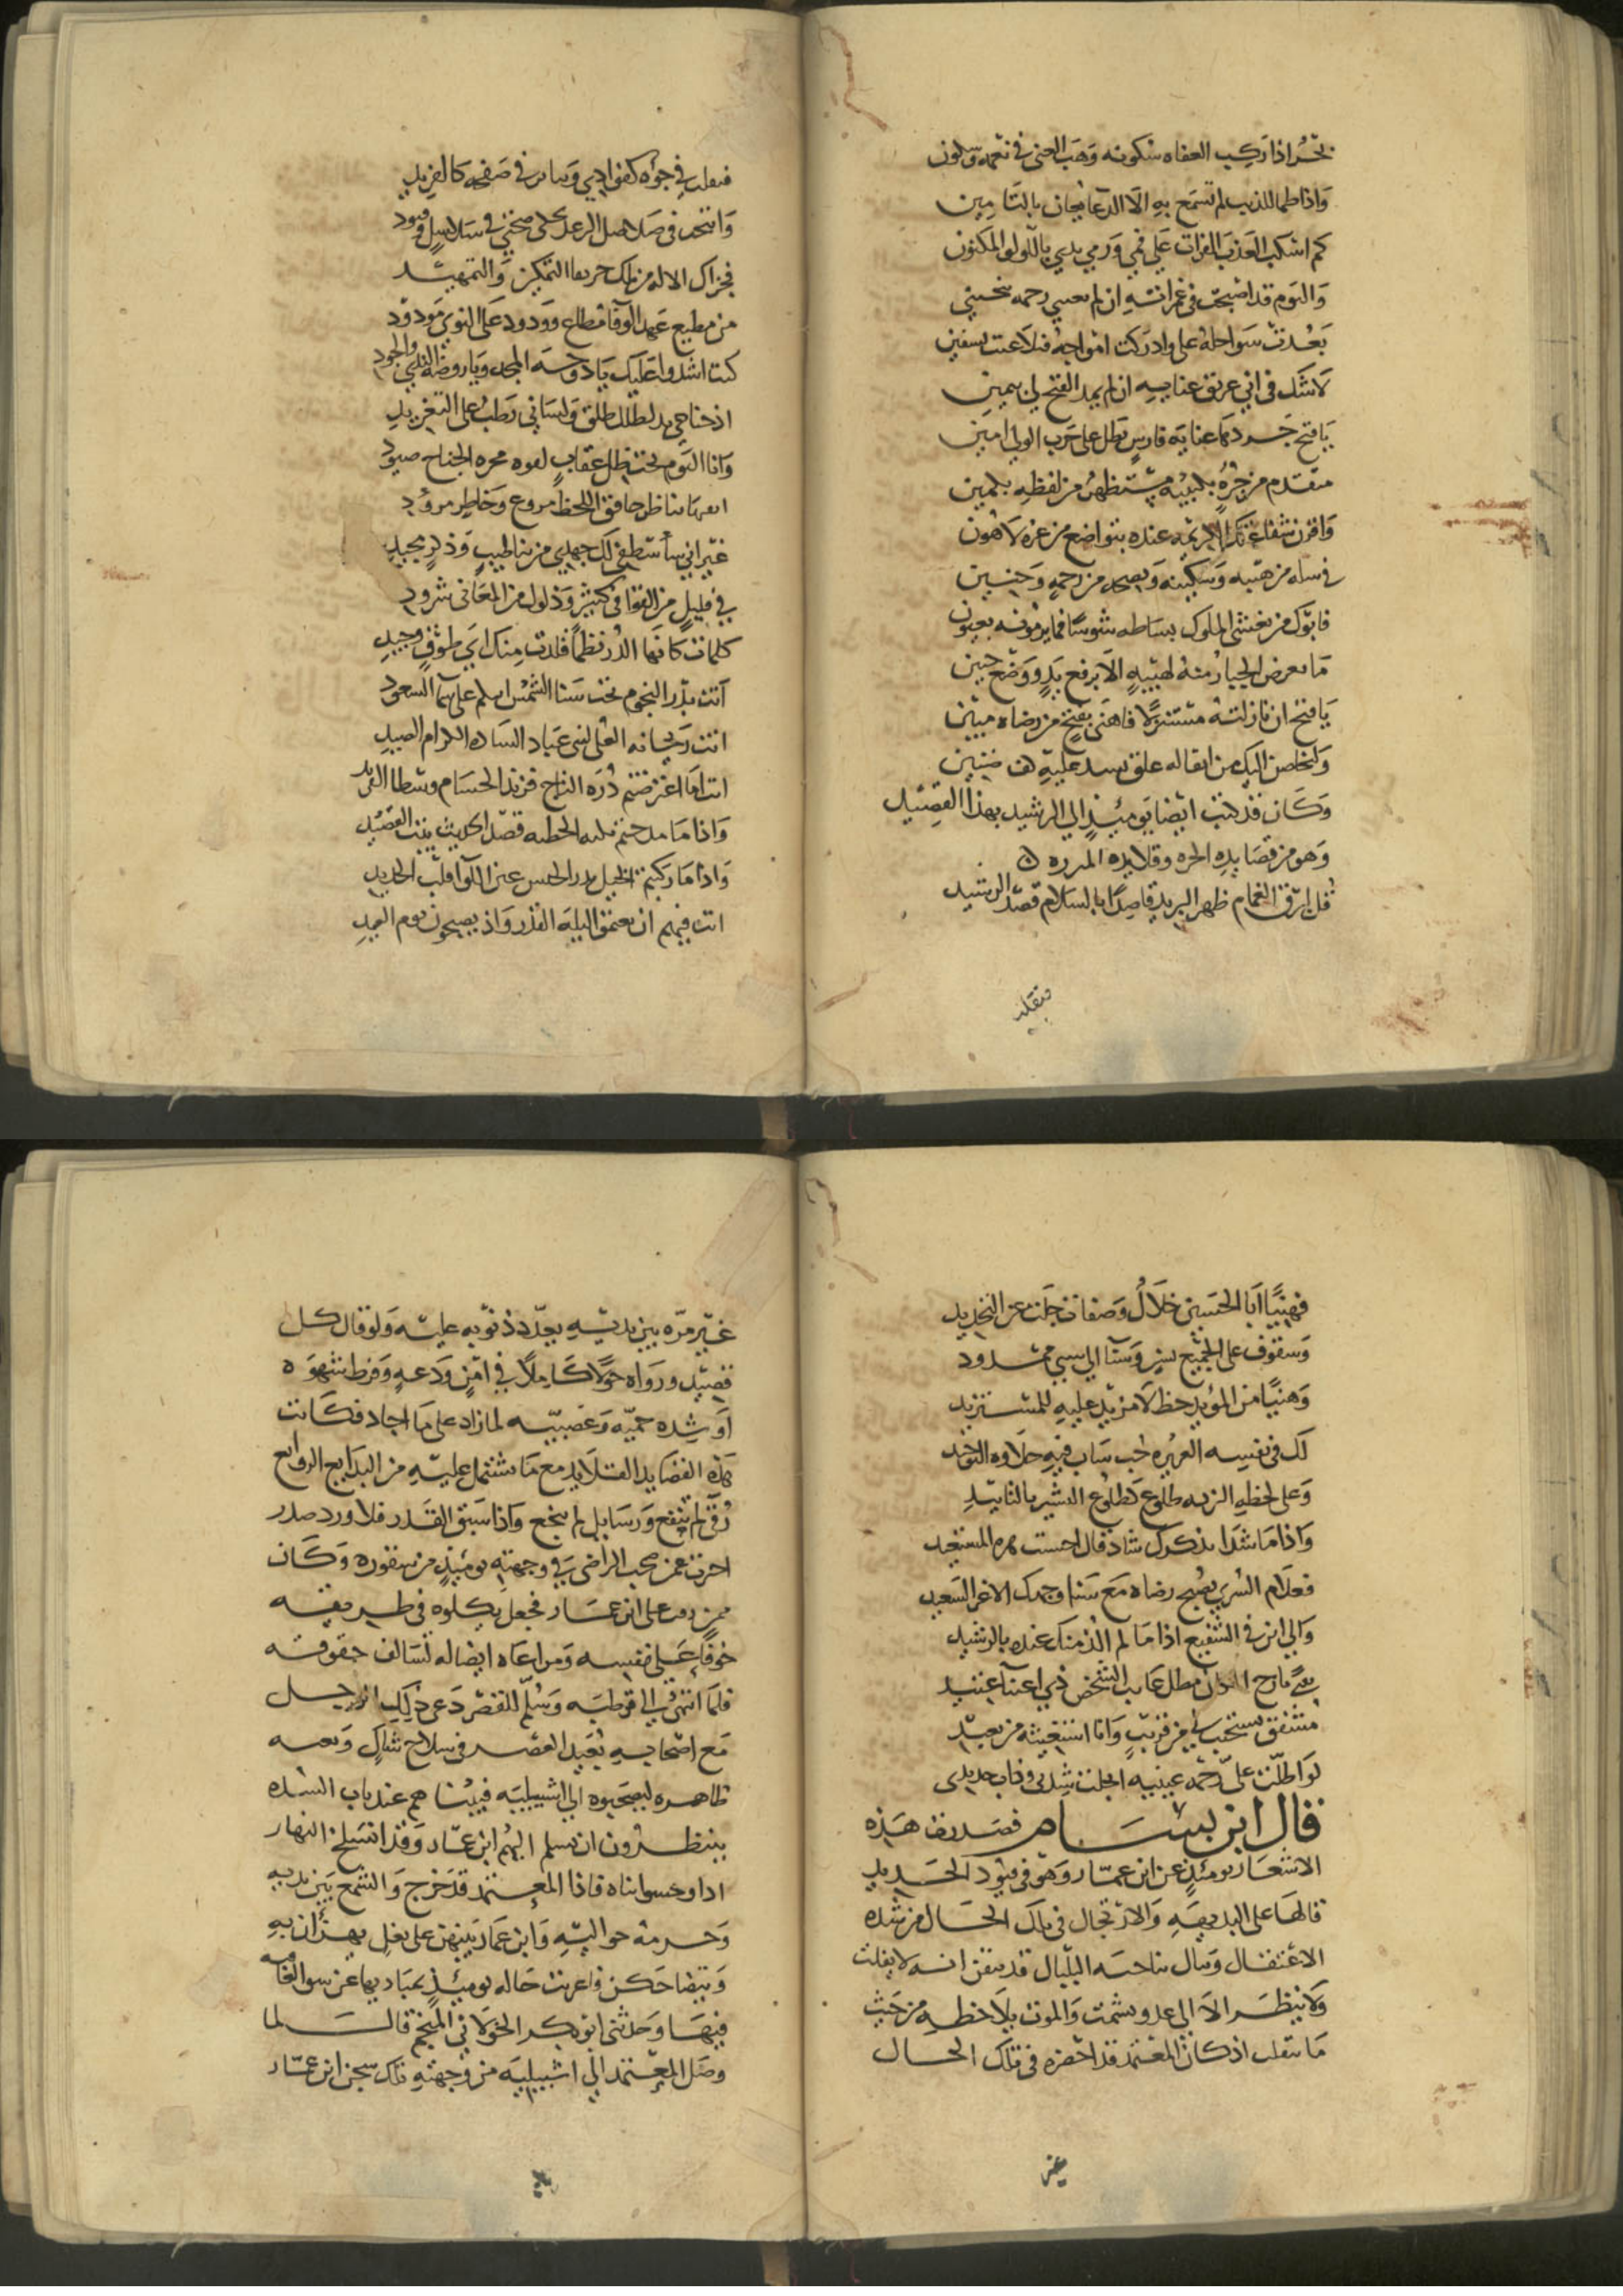 بحر اذا ركب العفاه سكونه وهب الغنى في نعمه وسكون
واذا طما للذنب لم تسمع به الا الدعا يجان بالتامين
كم اسكب العذب الفرات على فمي ورمى يدي باللولو المكنون
واليوم قد اصبحت في غمراته ان لم يغثني رحمه تنجيني
بعدت سواحله علي وادركت امواجه فتلاعبت بسفين
لا شك في اني غريق عبابه ان لم يمد الفتح لي بيمين
يا فتح جرد عنايه فارس بطل على حرب الولي امين
متقدم من جده بكتيبه مستظهر من لفظه بكمين
واقرن شفاعتك الكريمه عنده بتواضع من عزه لا هون
في من هيبه وسكينه من رحمه وحنين
فابوك من تغشى الملوك بساطه شوسا فما يرمونه بعيون
ما يعرض الجبار منه لهيبه الا برفع يد ووضع جبين
يا فتح ان نازلته مستنزلا فاهنى بفتح من رضاه مبين
وليخلصن اليك من اثقاله علق يسد عليه كف ضنين
وكان قد كتب ايضا يومئذ الى الرشيد بهذا القصيد
وهو من قصايده الحره وقلايده
قل لبرق الغمام ظهر البريد قاصدا بالسلام قصد الرشيد
فتقلب
فتقلب في جوه كفوادي وتناثر في صفحه كالفريد
وانتحب في صلاصل الرعد تحكي ضجتي في سلاسل وقيود
فجزاك الاله التمكين والتمهيد
من مطيع عهد الوفا مطاع وودود على النوى مودود
كنت اشدوا عليك يا دوحه المجد ويا روضه الندى والجود
اذ جناحي ند بظلك طلق ولساني رطب على التغريد
وانا اليوم تحت ظل عقاب لقوه الجناح صيود
ناظر خافق اللحظ مروع وخاطر مزوود
غير اني ساصطفي لك جهدي من ثنا طيب وذكر مجيد
في قليل من القوافي كثير وذلول من المعاني شرود
كلمات كانها الدر نظما قلدت منك اي طوق وجيد
انت بدر النجوم تحت سنا الشمس اسلم على سما السعود
انت ريحانه العلى لبني عباد الساده الكرام الصيد
انت اما اعترضتم دره التاج فرند الحسام وسطا الفريد
واذا ما مدحتم قبله الخطبه قصد الحديث بيت القصيد
واذا ما ركبتم الخيل بدر الحسن عين اللوا قلب الحديد
انت فيهم ان تعتموا ليله القدر واذ يصبحون يوم العيد
فهنيا ابا الحسين خلال وصفات جلت عن التحديد
وسقوف على الجميع بنين وسنا الى سبي مشدود
وهنيا من المويد حظ لا مزيد عليه للمستزيد
لك في نفسه العزيزه حب ساب فيه حلاوه التوحيد
وعلى لحظه النزيه طلوع كطلوع البشير بالتاييد
واذا ما شدا بذكرك شاد قال احسنت المستعيد
فعلام السرى بصبح رضاه مع سنا وجهك الاغر السعيد
والى اين في الشفيع اذا ما لم الذ منك عنده بالرشيد
مطل غايب الشخص ذي اعتنا عتيد
مشفق يستحب لي من قريب وانا استغيثه من بعيد
لو اطلت علي رحمه عينيه انجلت شدتي وذاب حديدي
قال ابن بسام فصدرت هذه
الاشعار يومئذ عن ابن عمار وهو في قيود الحديد
قالها على البديهه والارتجال في تلك الحال من شده
الاعتقال وبال ناحته البلبال قد تيقن انه لا يفلت
ولا ينظر الا الى عدو يشمت والموت يلاحظه من حيث
ما تقلب اذ كان المعتمد قد احضره في تلك الحال
غير
غير مره بين يديه يعدد ذنوبه عليه ولو قال كل
قصيد ورواه حولا كاملا في امن ودعه وفرط شهوه
او شده حميه وعصبيه لما زاد على ما اجاد فكانت
هذه القصايد القلايد مع ما تشتمل عليه من البدايع الروايع
رقى لم تنفع ورسايل لم تنجع واذا سبق القدر فلا ورد ولا صدر
اخبرت عمن صحب الراضي في وجهته يومئذ من شقوره وكان
ممن رق على ابن عمار فجعل يكلوه في طريقه
خوفا على نفسه ومراعاه ايضا له لسالف حقوقه
فلما انتهى الى قرطبه وسلم للقصر دعي ذلك الرجل
مع اصحابه بعيد العصر في سلاح شاك وتعبيه
ظاهره ليصحبوه الى اشبيليه فبينا هم عند باب السده
ينتظرون ان يسلم اليهم ابن عمار وقد انسلخ النهار
فاذا المعتمد قد خرج والشمع بين يديه
وحرمه حواليه وابن عمار بينهن على بغل يهزان به
ويتضاحكن فاعربت حاله يومئذ بمباديها عن سوء الخاتمه
فيها وحدثني ابو بكر الخولاني المنجم قال لما
وصل المعتمد الى اشبيليه من وجهته تلك سجن ابن عمار